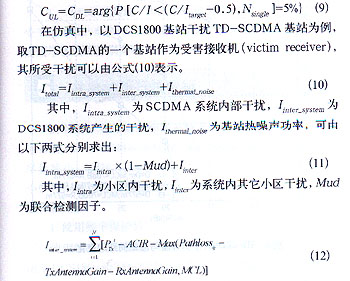 C_UL=C_DL=arg{P [C/I<(C/I_target-0.5),N_single]=5%} (9)
在仿真中，以DCS1800基站干扰TD-SCDMA基站为例，
取TD-SCDMA的一个基站作为受害接收机(victim receiver)，
其所受干扰可以由公式(10)表示。
I_total=I_intra_system+I_inter_system+I_thermal_noise (10)
其中，I_intra_system为SCDMA系统内部干扰，I_inter_system为
DCS1800系统产生的干扰，I_thermal_noise为基站热噪声功率，可由
以下两式分别求出：
I_intra_system=I_intra×(1-Mud)+I_inter (11)
其中，I_intra为小区内干扰，I_inter为系统内其它小区干扰，Mud
为联合检测因子。
I_inter_system=∑_{i=1}^{N}[P_Tx^i-ACIR-Max(Pathloss_i-
TxAntennaGain-RxAntennaGain,MCL)] (12)